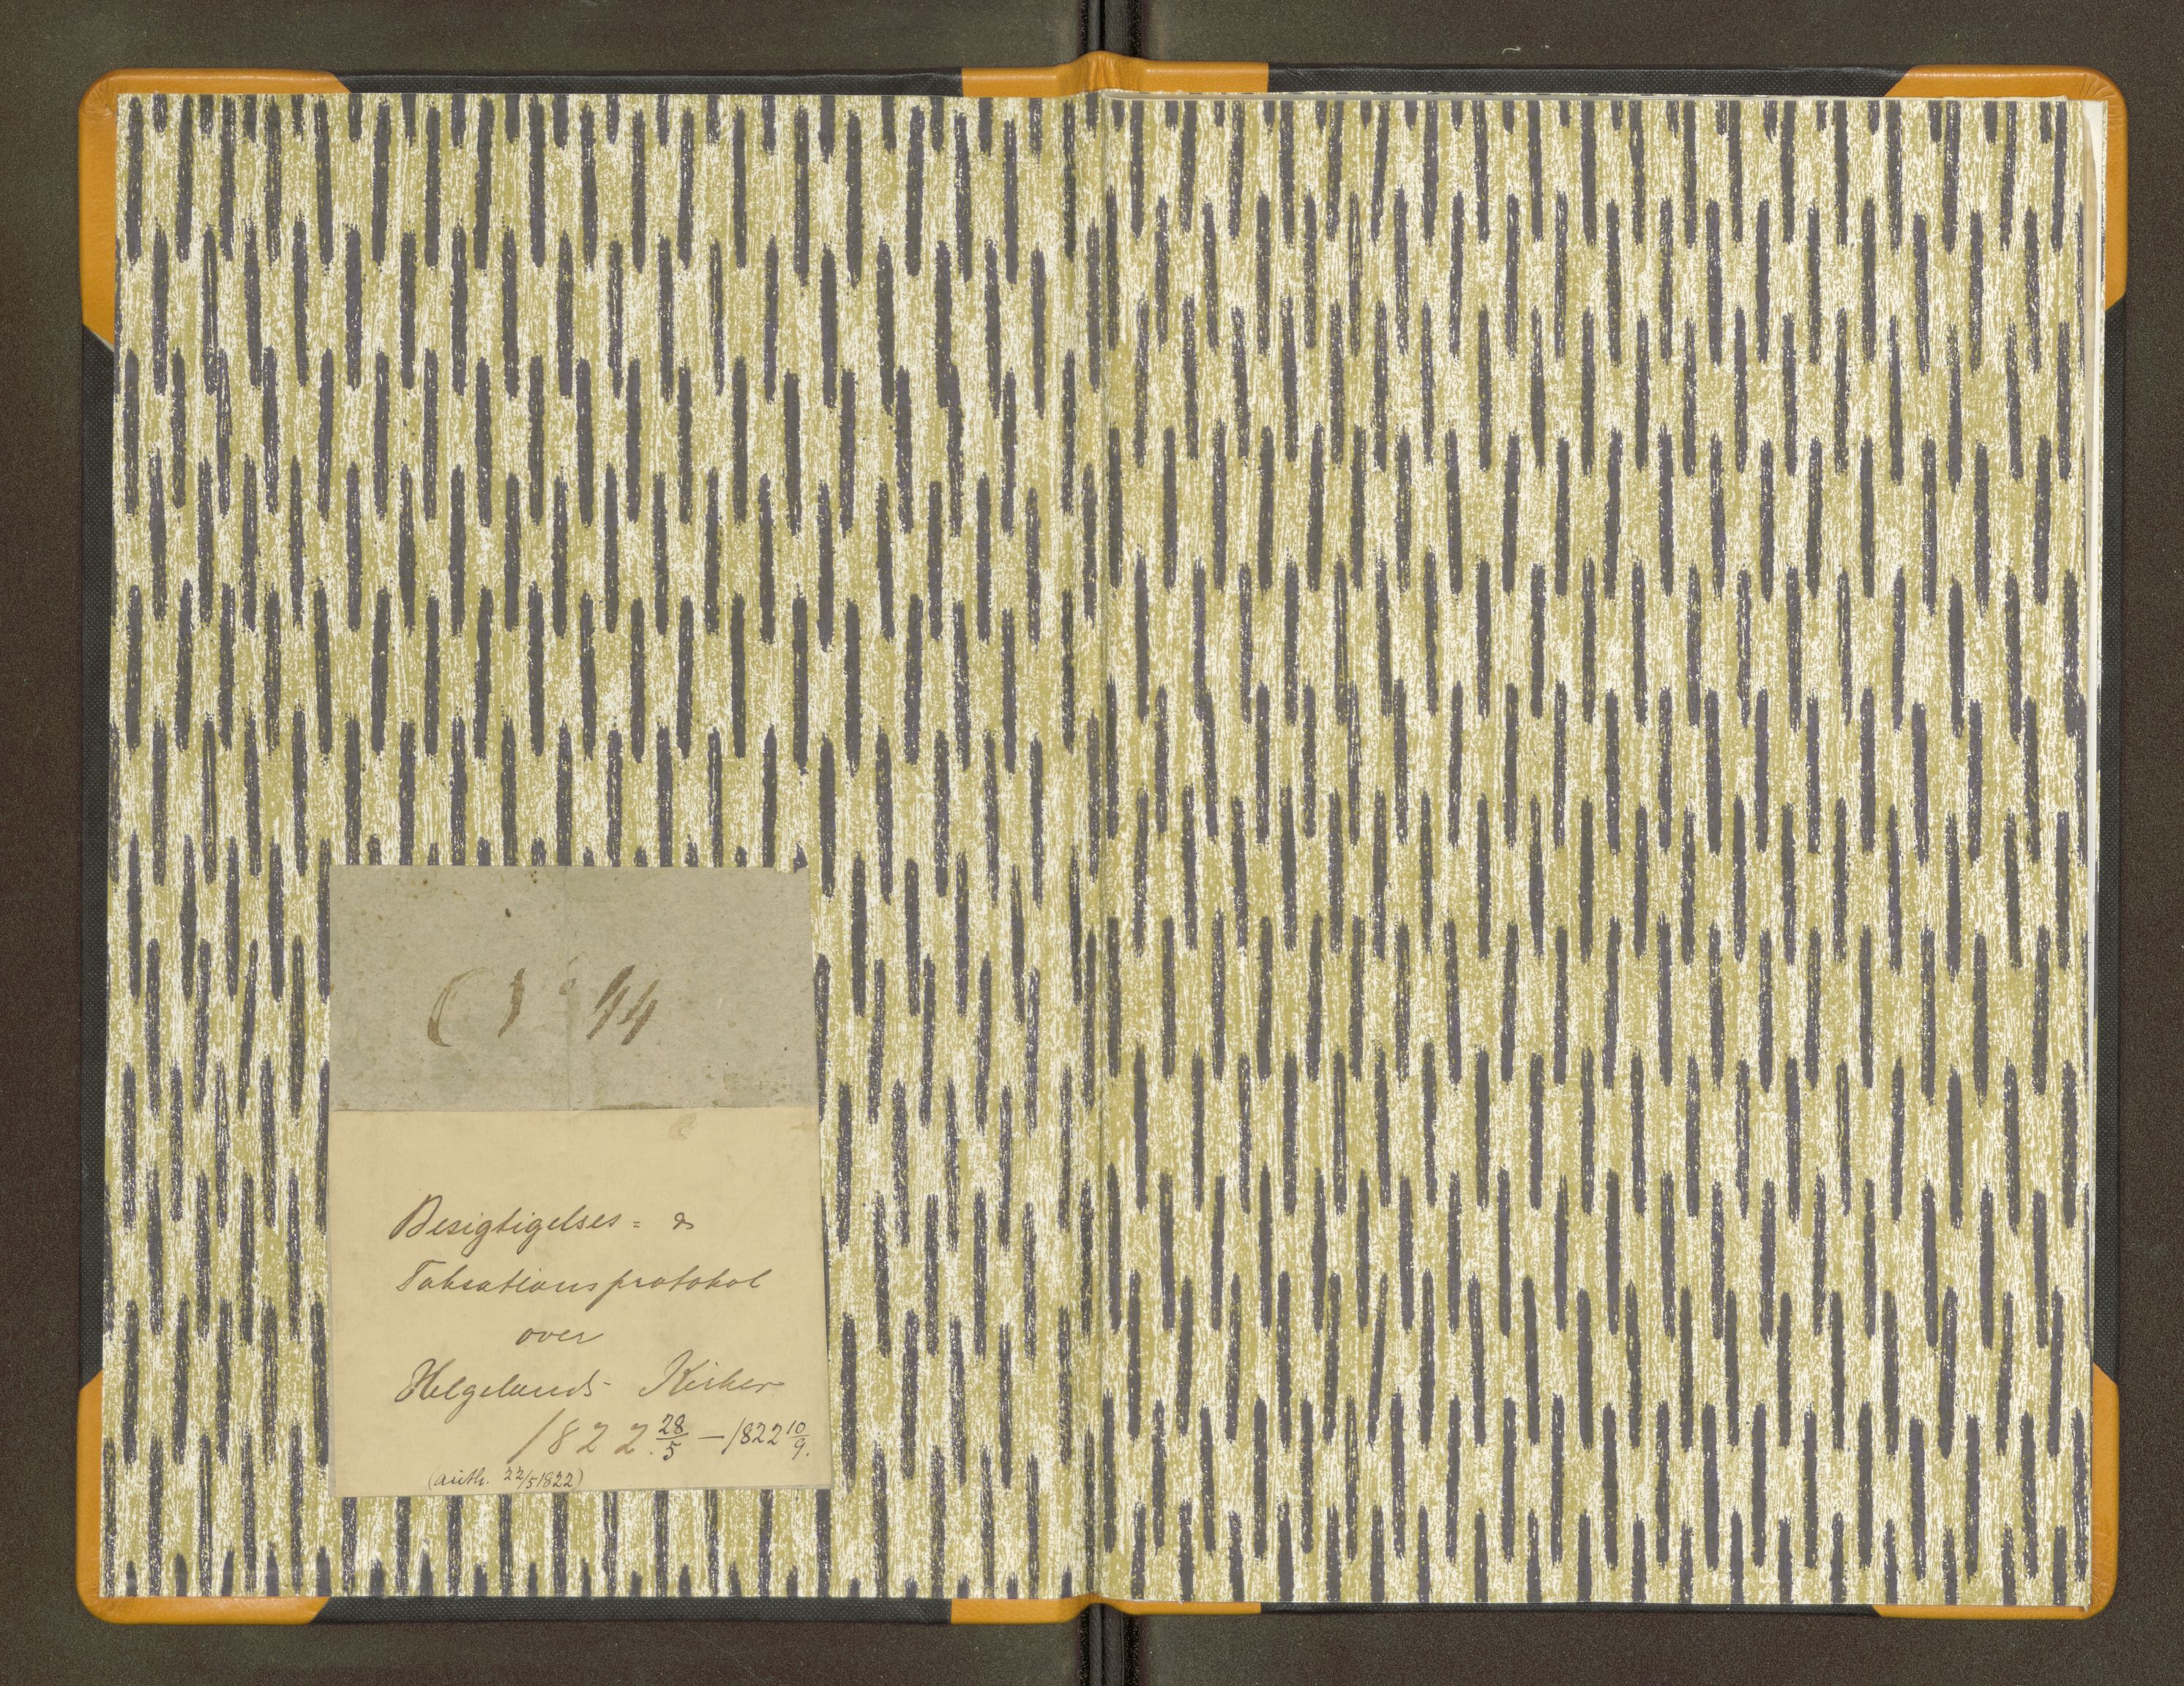 No 44
Besigtigelses= &
Taksationsprotokol
over
Helgelands Kirker
1822 28/5 — 1822 10/9.
(auth. 22/5 1822)